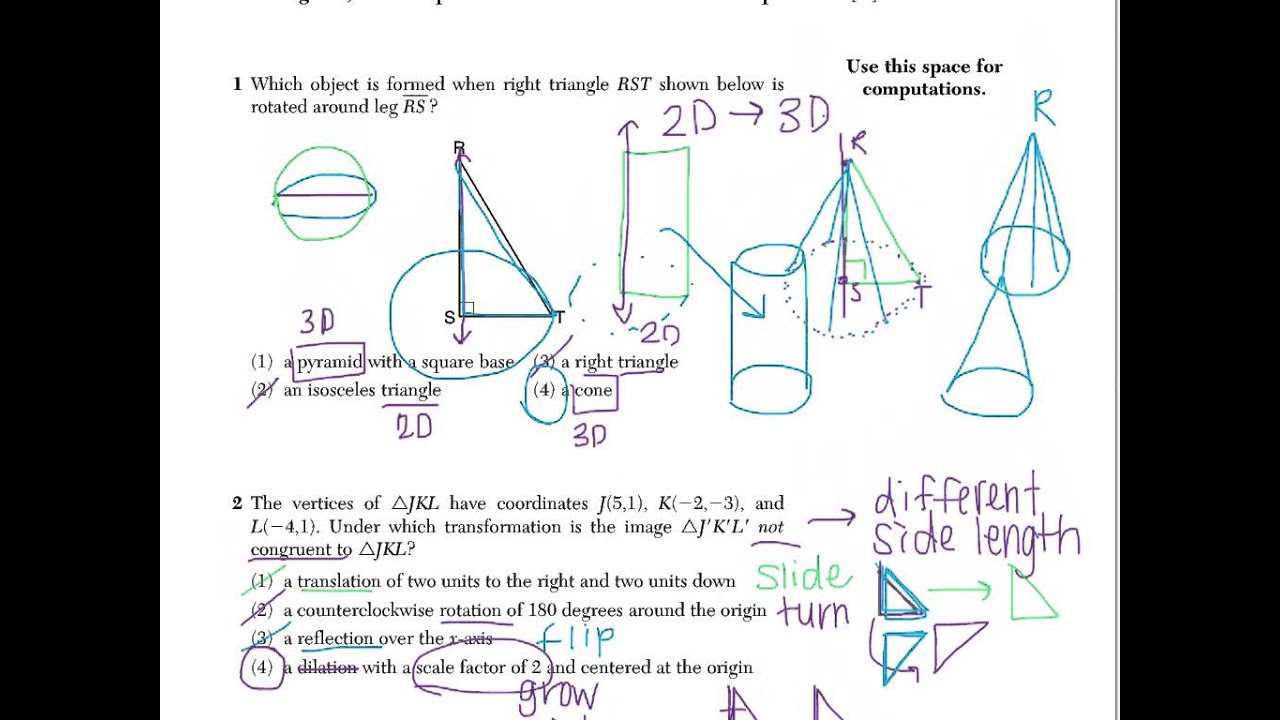 1 Which object is formed when right triangle RST shown below is
rotated around leg RS?
Use this space for
computations.
2D → 3D
R
S
T
R
S
T
R
2D
3D
(1) a pyramid with a square base
(3) a right triangle
(2) an isosceles triangle
(4) a cone
2D
3D
2 The vertices of △JKL have coordinates J(5,1), K(−2,−3), and
L(−4,1). Under which transformation is the image △J′K′L′ not
congruent to △JKL?
→ different
side length
(1) a translation of two units to the right and two units down
slide
(2) a counterclockwise rotation of 180 degrees around the origin
turn
(3) a reflection over the x-axis
flip
(4) a dilation with a scale factor of 2 and centered at the origin
grow